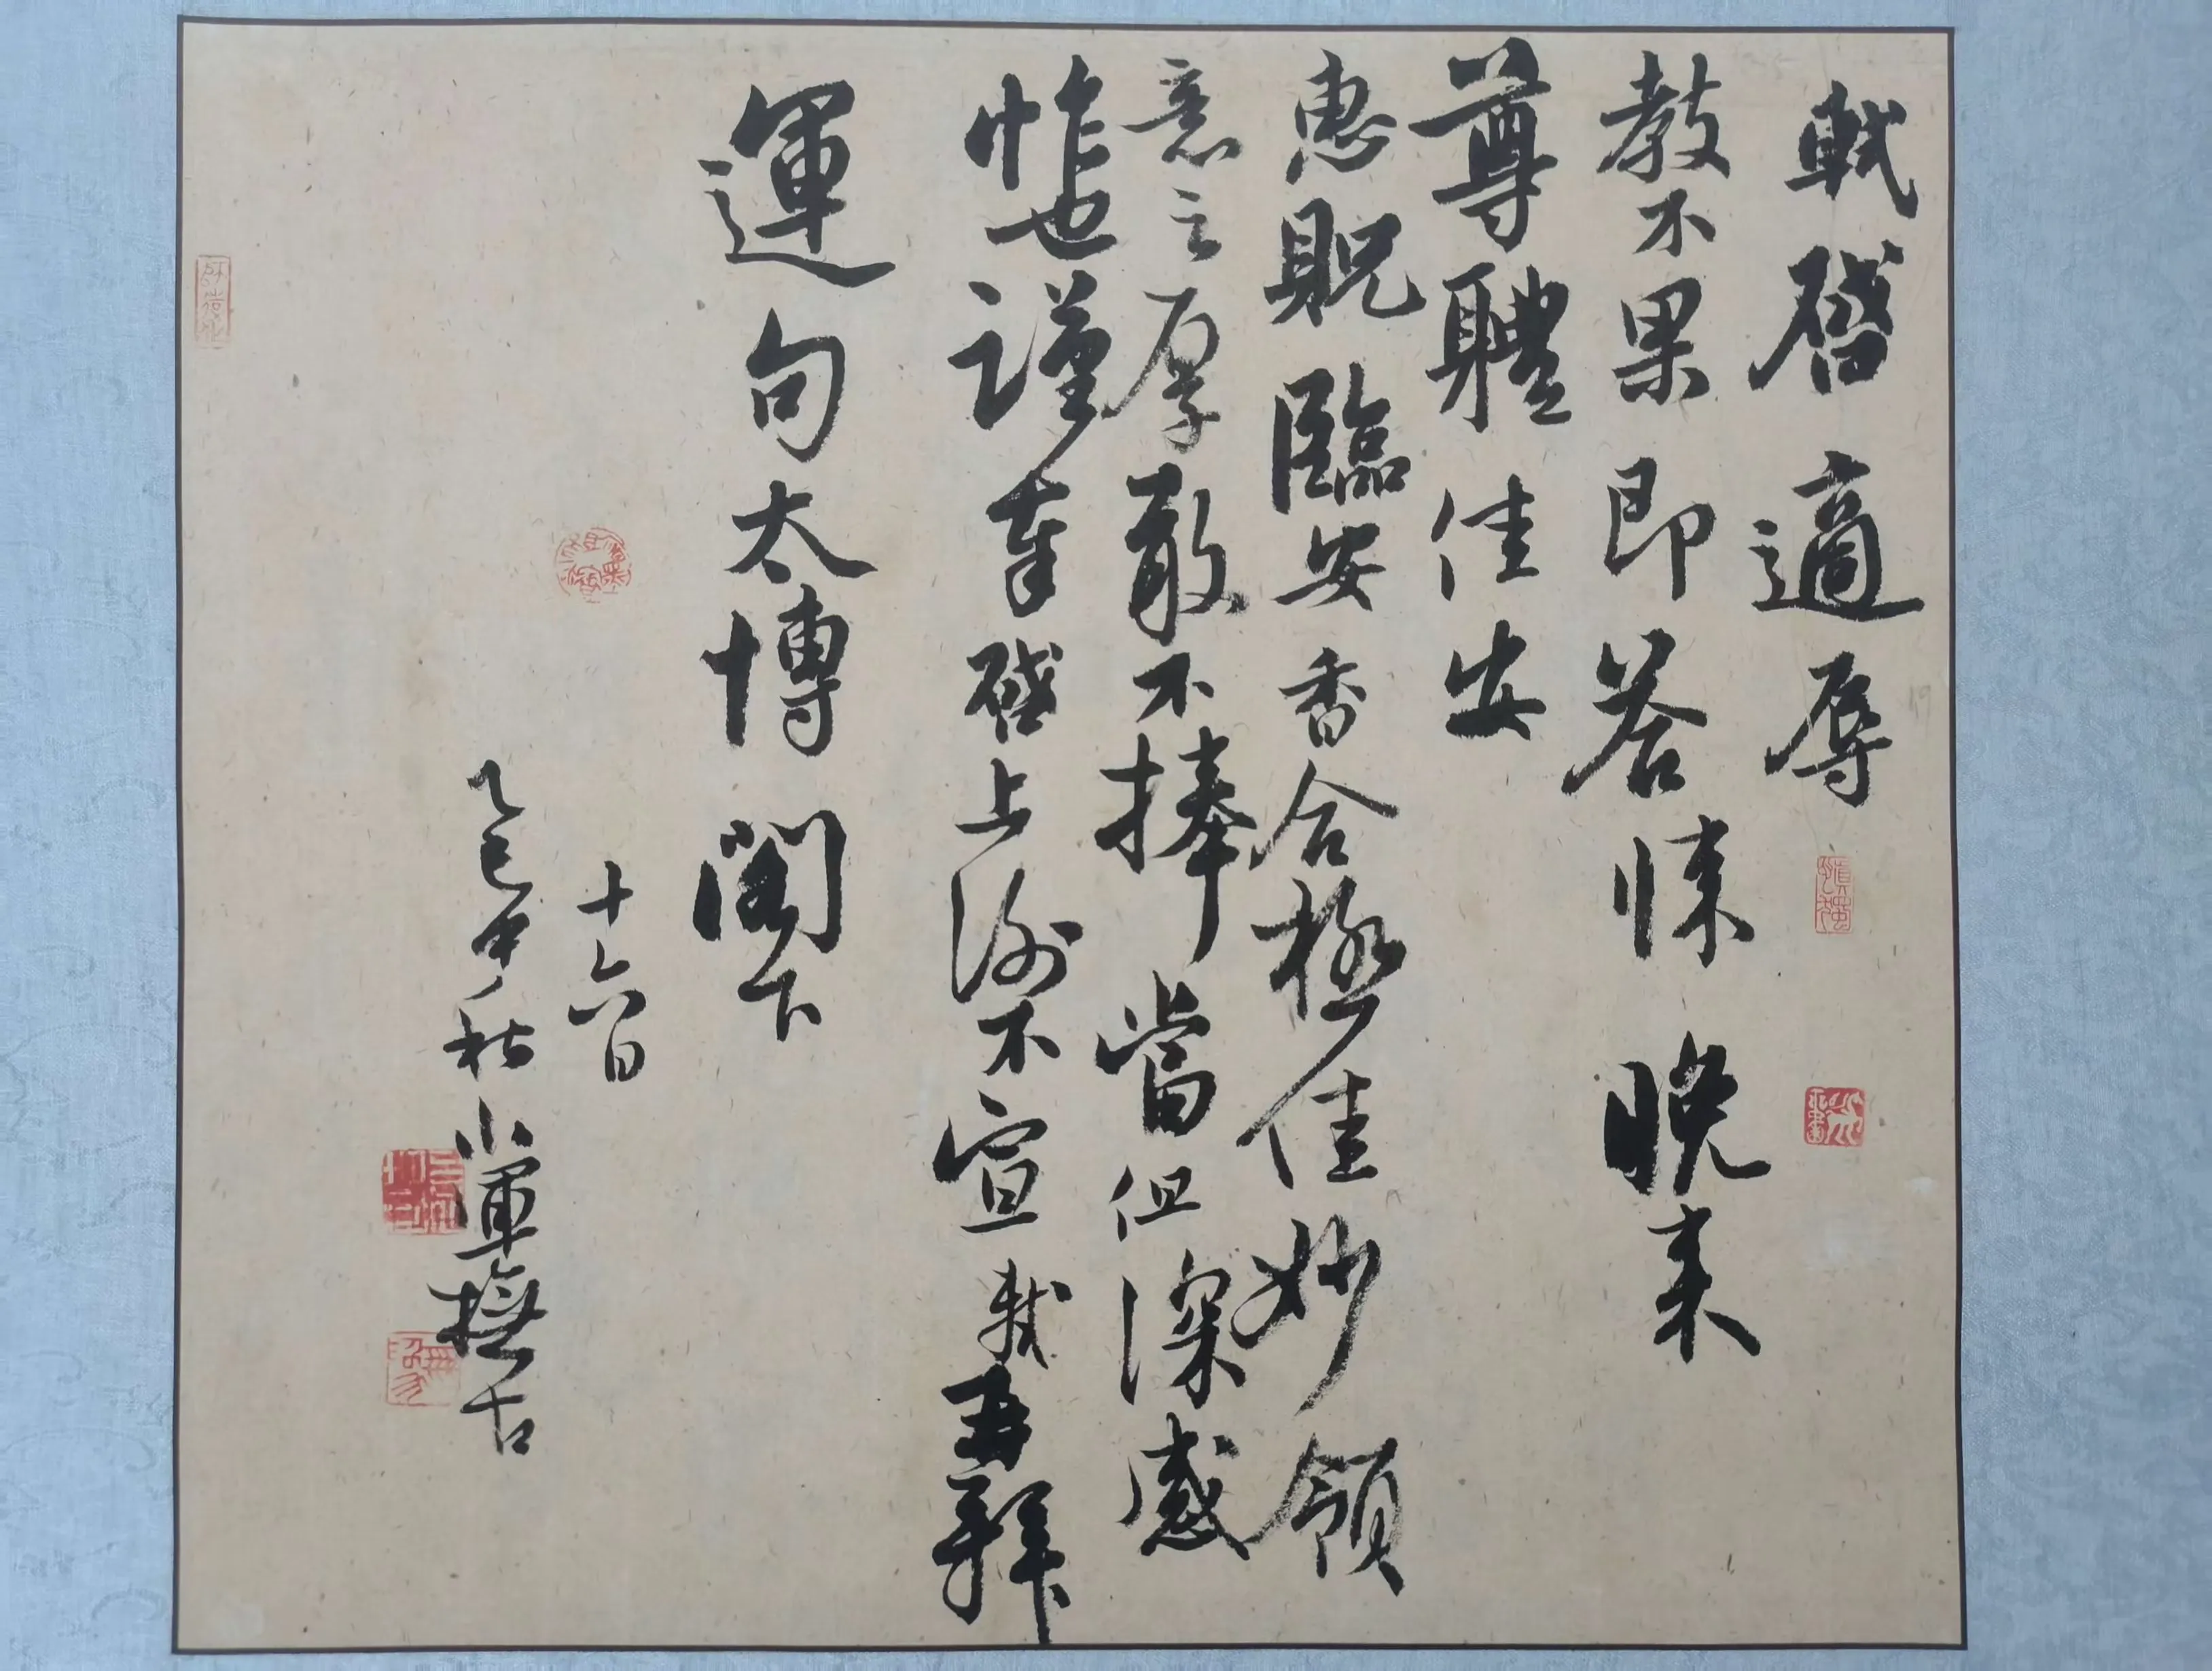 軾啓適辱
教不果即答悚晚來
尊體佳安
惠貺臨安香合極佳妙領
意之厚敢不捧當但深感
怍也謹奉啓上谢不宣軾再拜
運句太博閣下
十六日
乙巳中秋小軍撫古